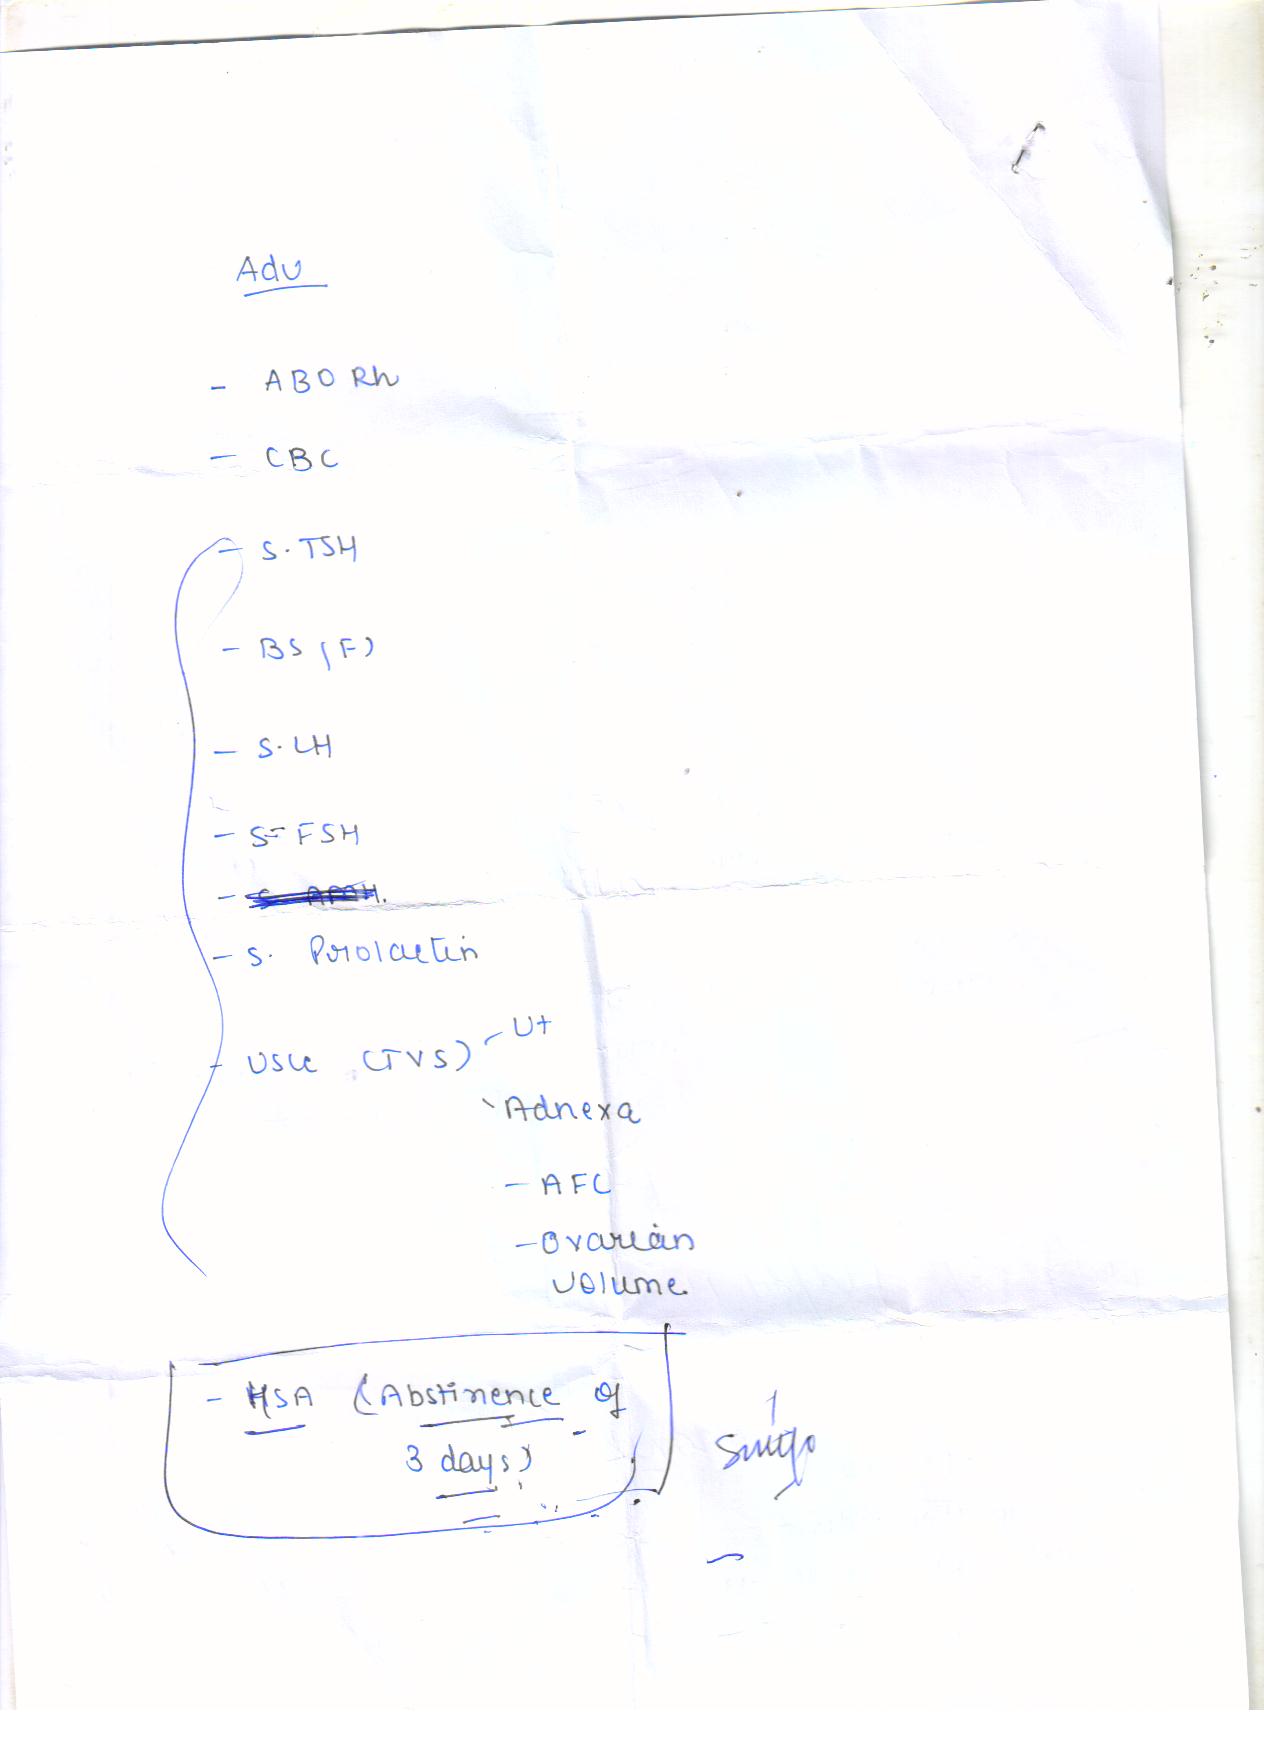 Adv
- ABO Rh
- CBC
- S. TSH
- BS (F)
- S. LH
- S. FSH
- S. Prolactin
- USG (TVS) - Ut
- Adnexa
- AFC
- Ovarian
volume
- HSA (Abstinence of
3 days)